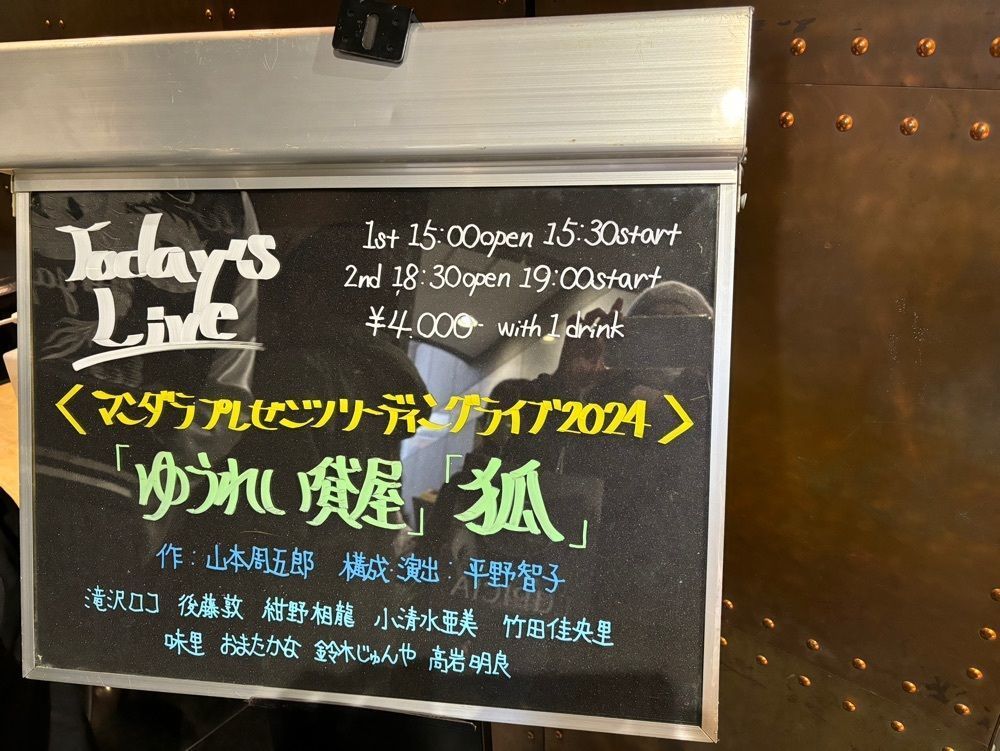 Today's
Live
1st 15:00open 15:30start
2nd 18:30open 19:00start
¥4.000- with 1 drink
〈マンダラプレゼンツリーディングライブ2024〉
「ゆうれい貸屋」「狐」
作：山本周五郎 構成・演出：平野智子
滝沢ロコ 後藤敦 紺野相龍 小清水亜美 竹田佳央里
味里 おまたかな 鈴木じゅんや 高岩明良